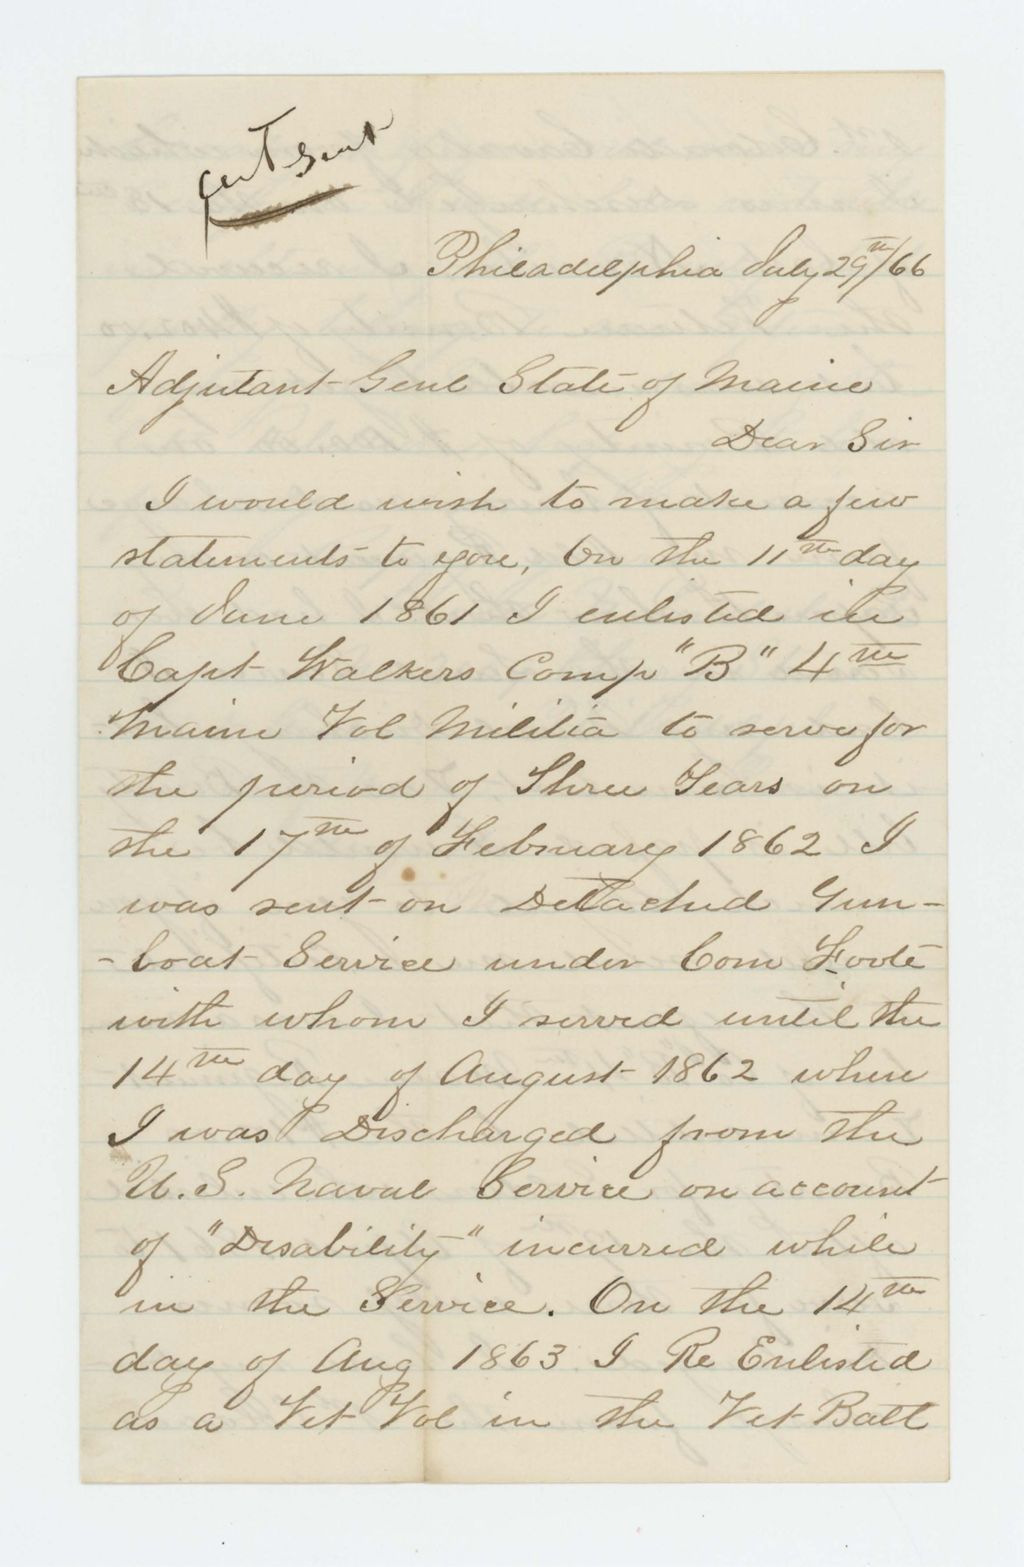 Cert Sent
Philadelphia July 29th/66
Adjutant Genl State of Maine
Dear Sir
I would wish to make a few
statements to you, On the 11th day
of June 1861 I enlisted in
Capt Walkers Comp "B" 4th
Maine Vol Militia to serve for
the period of Three Years on
the 17th of February 1862 I
was sent on Detached Gun-
-boat Service under Com Foote
with whom I served until the
14th day of August 1862 when
I was Discharged from the
U.S. Naval Service on account
of "Disability" incurred while
in the Service. On the 14th
day of Aug 1863 I Re Enlisted
as a Vet Vol in the Vet Batt